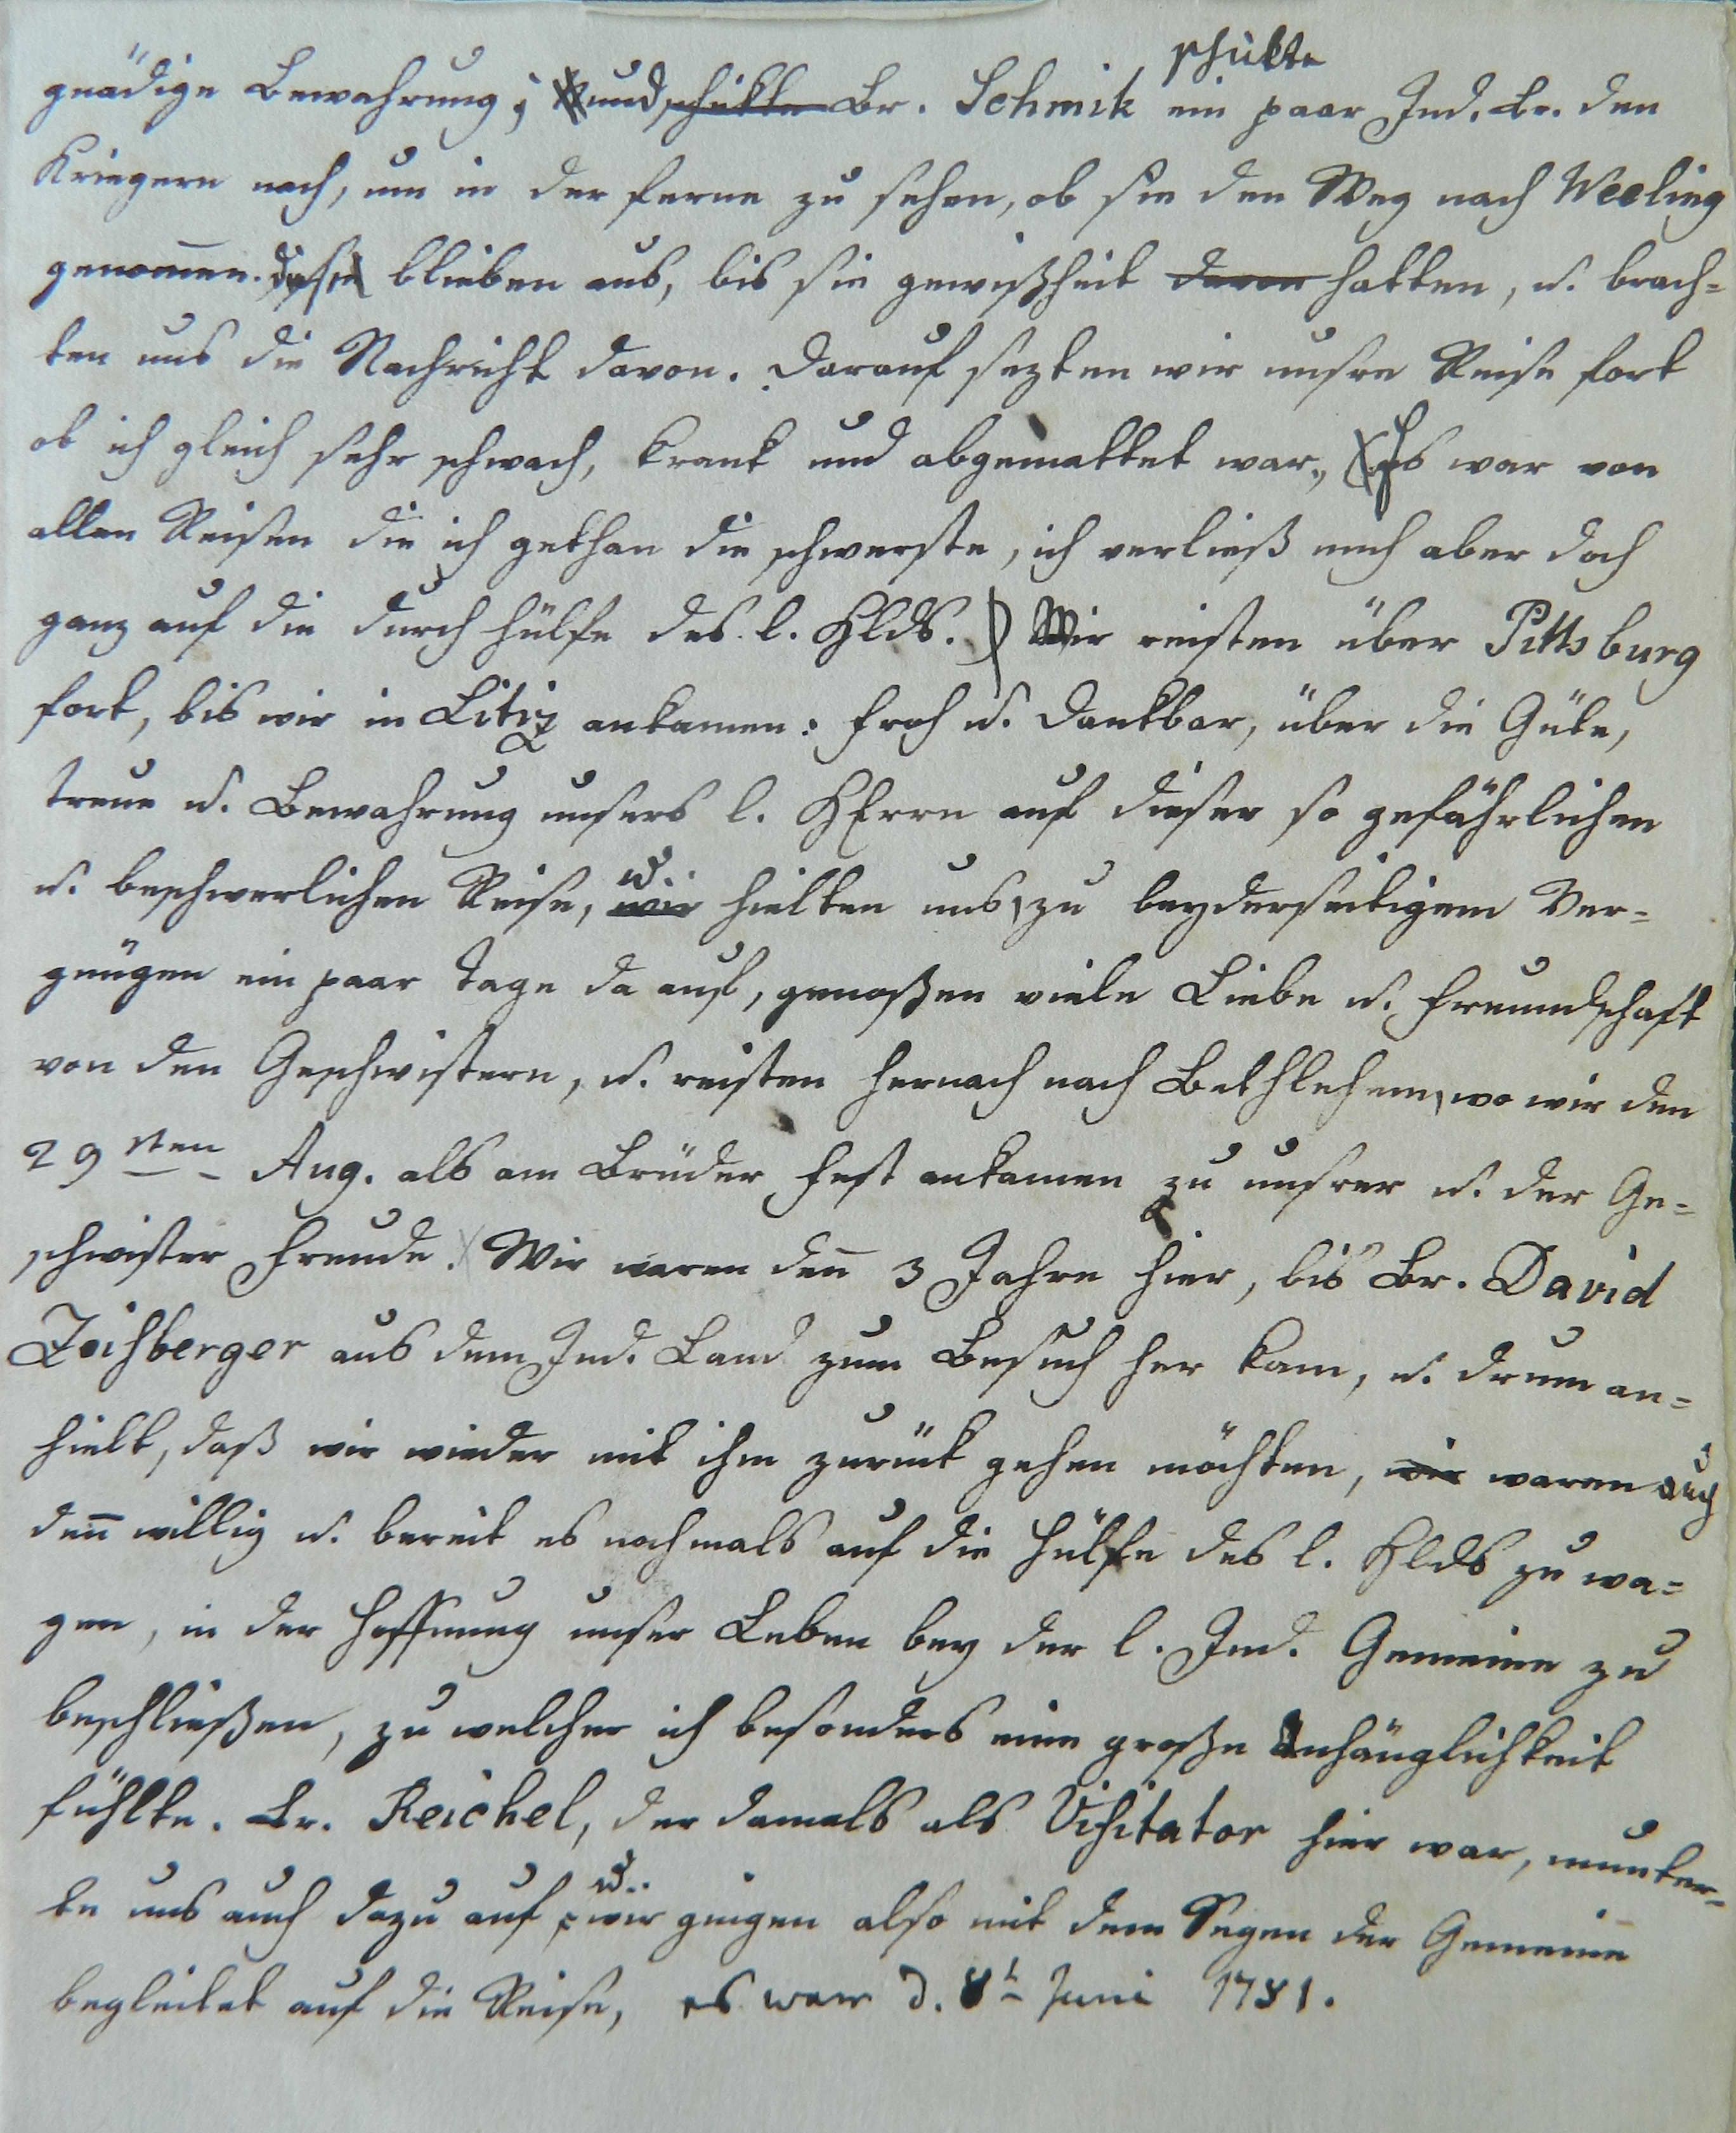 schikte
gnädige Bewahrung; und schikte Br. Schmik ein paar Ind. Br. den
Kriegern nach, um in der ferne zu sehen, ob sie den Weg nach Weeling
genom̅en. diese blieben aus, bis sie gewißheit davon hatten, u. brach=
ten uns die Nachricht davon. Darauf sezten wir unsre Reise fort
ob ich gleich sehr schwach, krank und abgemattet war, (Es war von
allen Reisen die ich gethan die schwerste, ich verließ mich aber doch
ganz auf die durch hülfe des l. Hlds.) Wir reisten über Pittsburg
fort, bis wir in Litiz ankamen: froh u. dankbar, über die Güte,
treue u. Bewahrung unsers l. HErrn auf dieser so gefährlichen
u. beschwerlichen Reise, wir u. hielten uns, zu beyderseitigem Ver=
gnügen ein paar tage da auf, genoßen viele Liebe u. freundschaft
von den Geschwistern, u. reisten hernach nach Bethlehem, wo wir den
29sten Aug. als am Brüder fest ankamen zu unsrer u. der Ge=
schwister freude. Wir waren den̅ 3 Jahre hier, bis Br. David
Zeisberger aus dem Ind. Land zum Besuch her kam, u. drum an=
hielt, daß wir wieder mit ihm zurück gehen möchten, wir waren auch
den̅ willig u. bereit es nochmals auf die hülfe des l. Hlds zu wa=
gen, in der hoffnung unser Leben bey der l. Ind. Gemeine zu
beschließen, zu welcher ich besonders eine große Anhänglichkeit
fühlte. Br. Reichel, der damals als Visitator hier war, munter=
te uns auch dazu auf, u. wir gingen also mit dem Segen der Gemeine
begleitet auf die Reise, es war d. 8t Juni 1781.